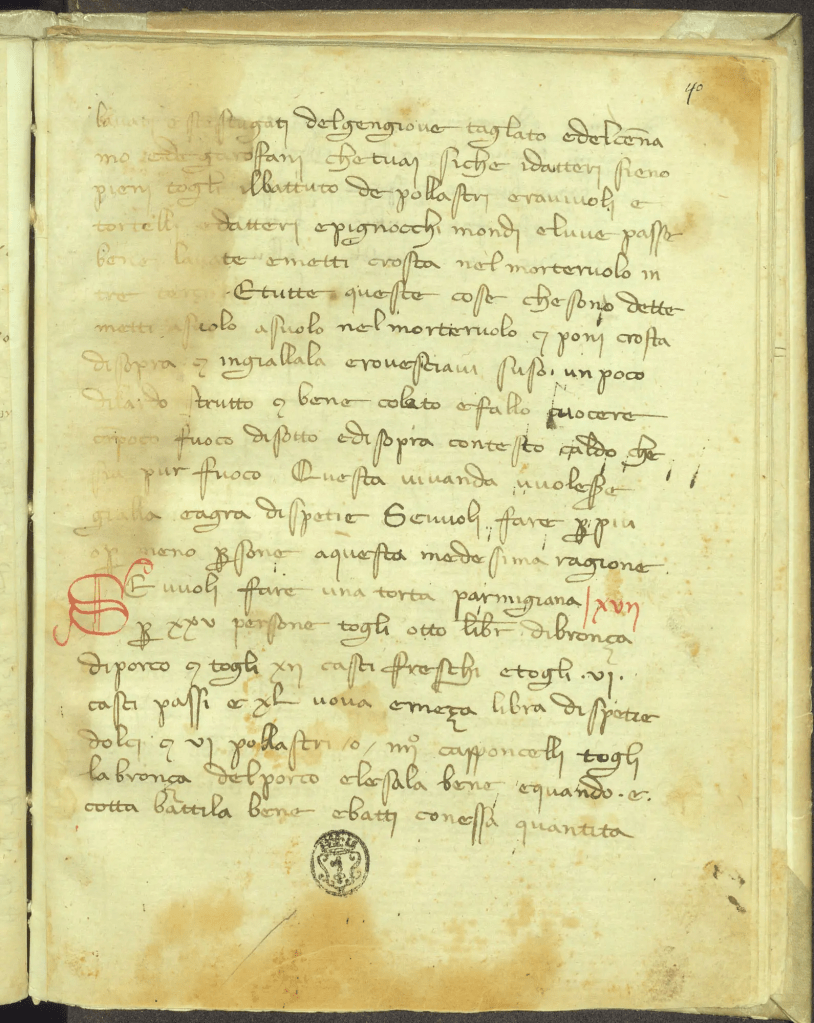 40
del gengiove taglato e del cēna
mo e de garofani che tuai siche i datteri sieno
pieni togli il battuto de pollastri e ravivoli e
tortelli e datteri e pignocchi mondi e luve passe
bene lavate e metti crosta nel morteruolo in
tre Et tutte queste cose che sono dette
metti asuolo asuolo nel morteruolo et poni crosta
di sopra et ingiallala e rovesciavi suso un poco
di lardo strutto et bene colato e fallo cuocere
a poco fuoco di sotto e di sopra con testo caldo che
pur fuoco Questa vivanda vuolessere
gialla e agra di spetie Se vuoli fare ꝑ piu
o ꝑ meno ꝑsone a questa medesima ragione
SE vuoli fare una torta parmigiana xvii
ꝑ xxv persone togli otto libr̄ di bronça
di porco et togli xii casci freschi e togli .vi.
casci passi e xl uova e meça libra di spetie
dolci et vi pollastri /o/ iiiiº capponcelli togli
la bronça del porco e lesala bene e quando .e.
cotta battila bene e batti con essa quantita